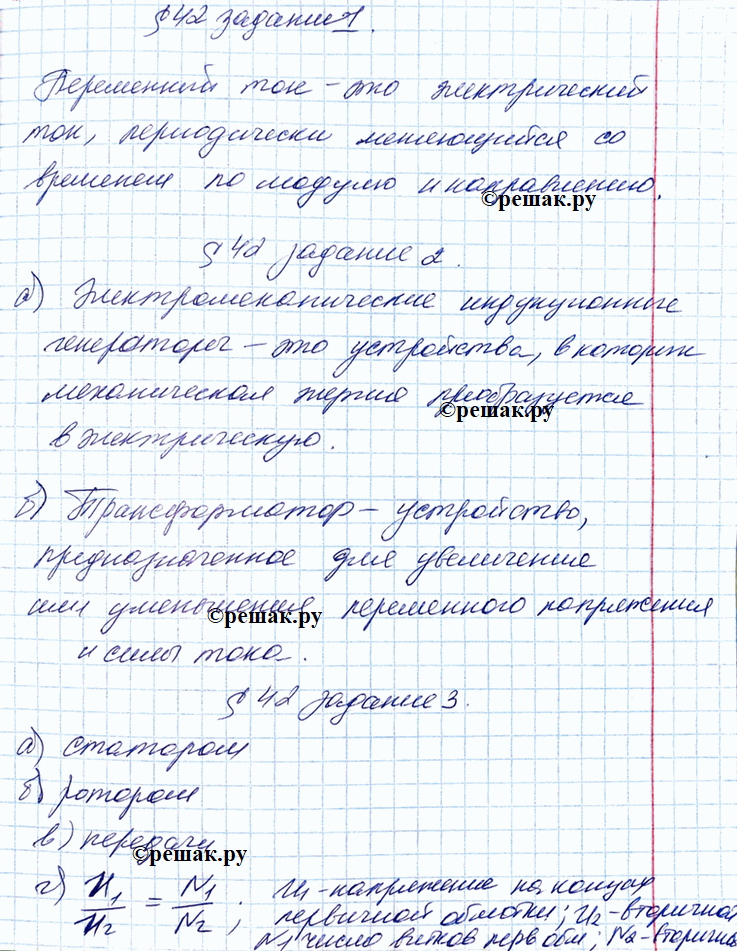 § 42 задание 1.
Переменный ток – это электрический
ток, периодически меняющийся со
временем по модулю и направлению.
©решак.ру
§ 42 задание 2.
а) Электромеханические индукционные
генераторы – это устройства, в которых
механическая энергия преобразуется
©решак.ру
в электрическую.
б) Трансформатор – устройство,
предназначенное для увеличения
или уменьшения переменного напряжения
©решак.ру
и силы тока.
§ 42 задание 3.
а) статором
б) ротором
в) передачи
©решак.ру
г) U₁/U₂ = N₁/N₂; U₁ - напряжение на концах
первичной обмотки; U₂ - вторичной
N₁ число витков перв обм. N₂ - вторичн